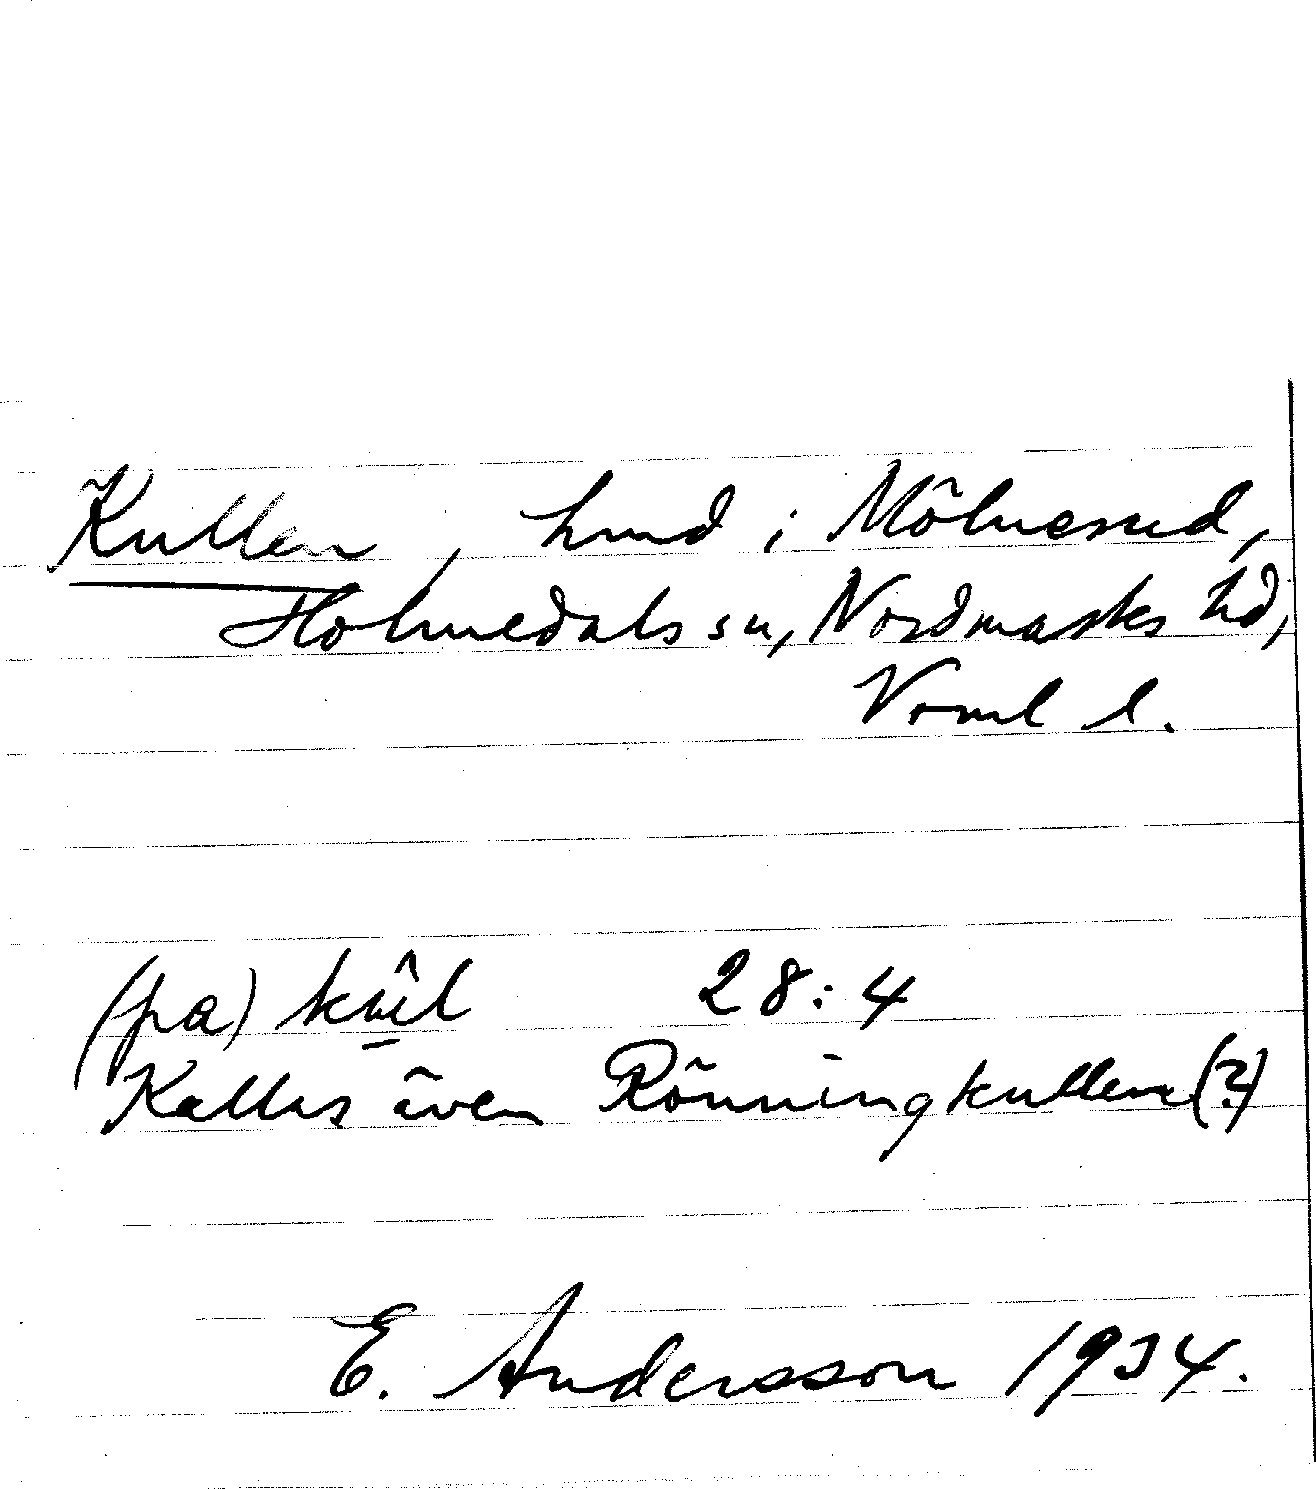 Kullen, hmd i Mölnerud,
Holmedals sn, Nordmarks hd,
Vrml l.
(på) 28:4
Kallas även Rönningkullen (?)
E. Andersson 1934.